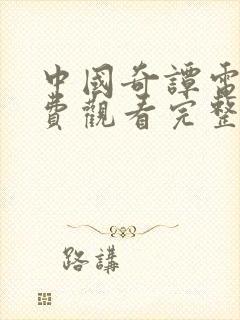 中國奇譚電
費觀看完整
路講